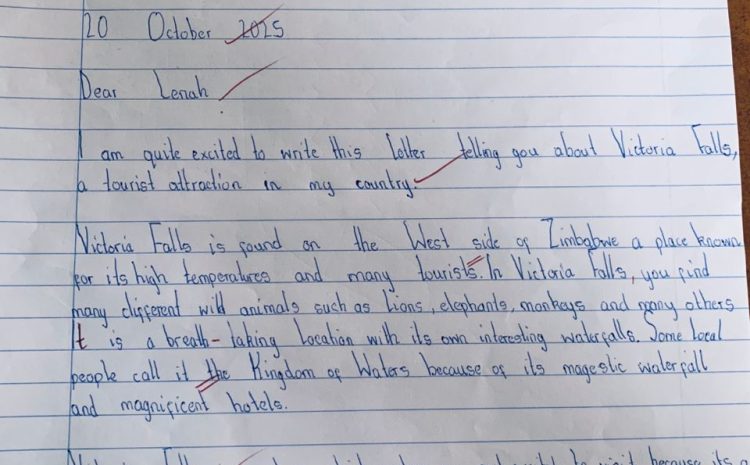 20 October 2025
Dear Lenah
I am quite excited to write this letter telling you about Victoria Falls,
a tourist attraction in my country.
Victoria Falls is found on the West side of Zimbabwe a place known
for its high temperatures and many tourists. In Victoria Falls, you find
many different wild animals such as Lions, elephants, monkeys and many others
It is a breath-taking Location with its own interesting waterfalls. Some Local
people call it the Kingdom of Waters because of its magestic waterfall
and magnificent hotels.
because its a